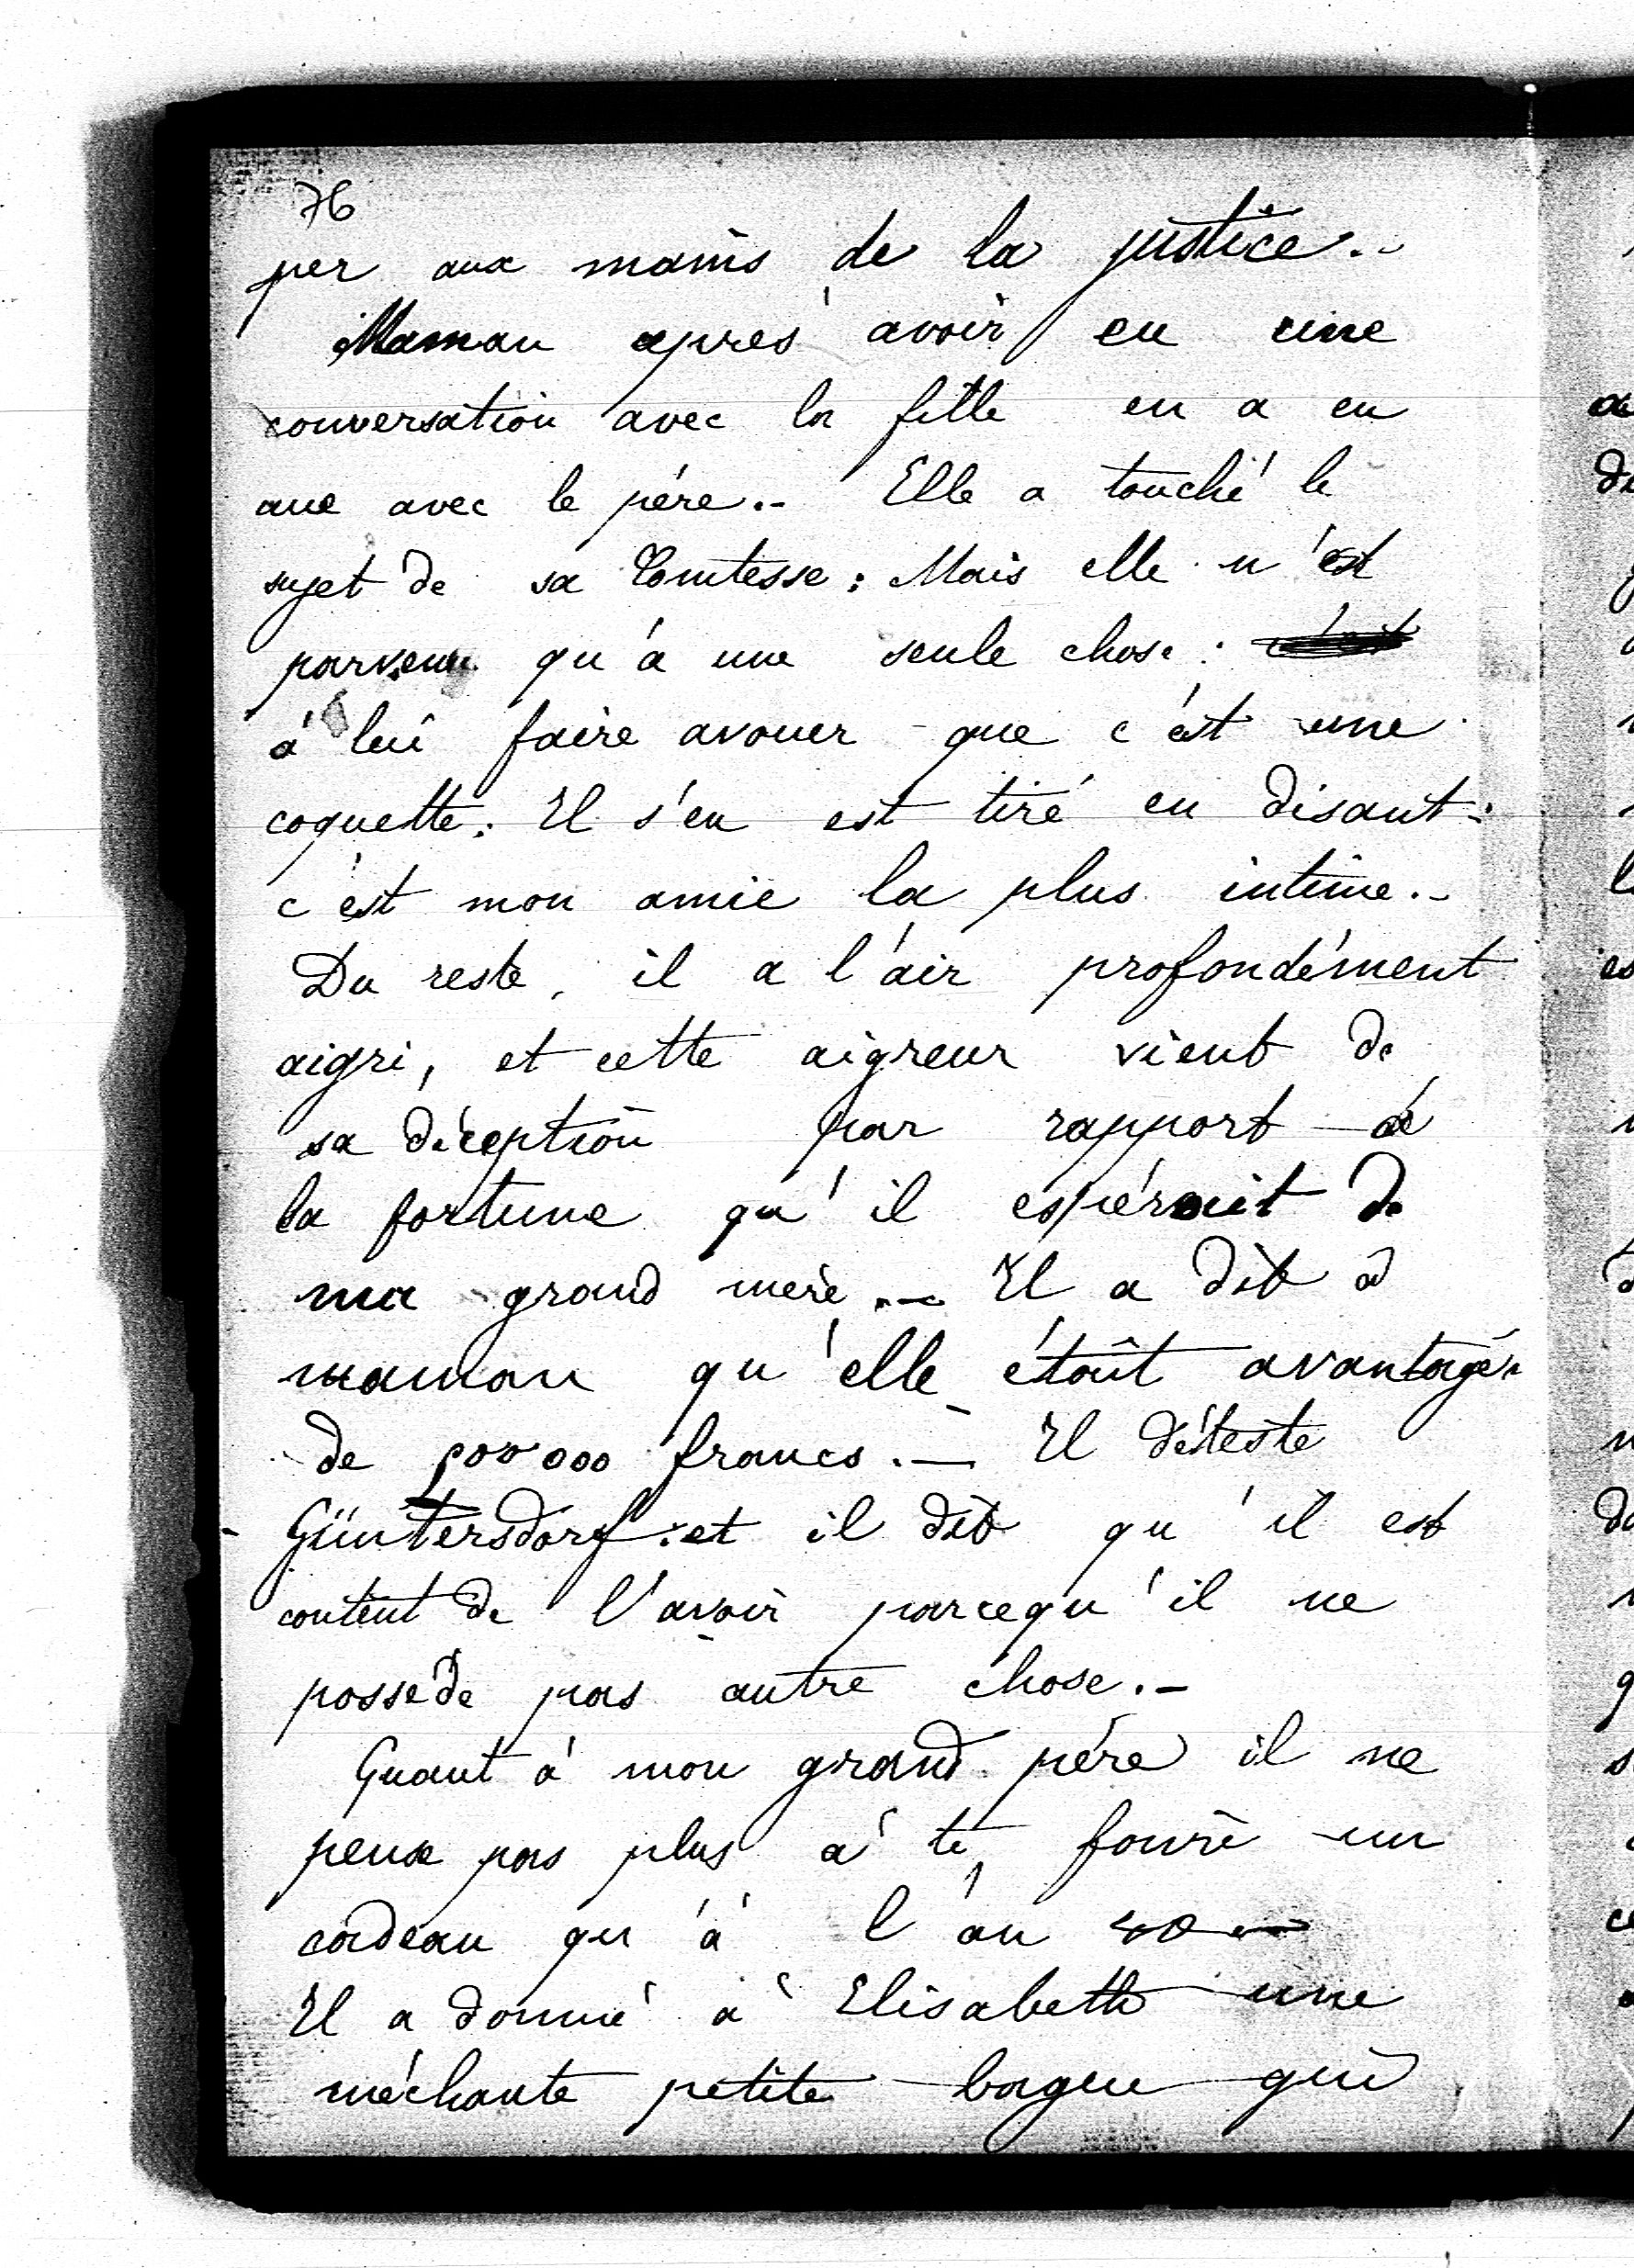 76
per aux mains de la justice.-
Maman après avoir eu une
conversation avec la fille en a eu
une avec le père.- Elle a touché le
sujet de sa Comtesse: Mais elle n'est
parvenu qu'à une seule chose:
à lui faire avouer que c'est une
coquette. Il s'en est tiré en disant:
c'est mon amie la plus intime.-
Du reste, il a l'air profondément
aigri, et cette aigreur vient de
sa déception par rapport à
la fortune qu'il espérait de
ma grand mère.- Il a dit à
maman qu'elle était avantagée
de 000 francs.- Il déteste
Güntersdorf: et il dit qu'il est
content de l'avoir parcequ'il ne
possède pas autre chose.-
Quant à mon grand père il ne
peux pas plus à te, un
cadeau qu'à l'an 40
Il a donné à Elisabeth une
méchante petite bague qui